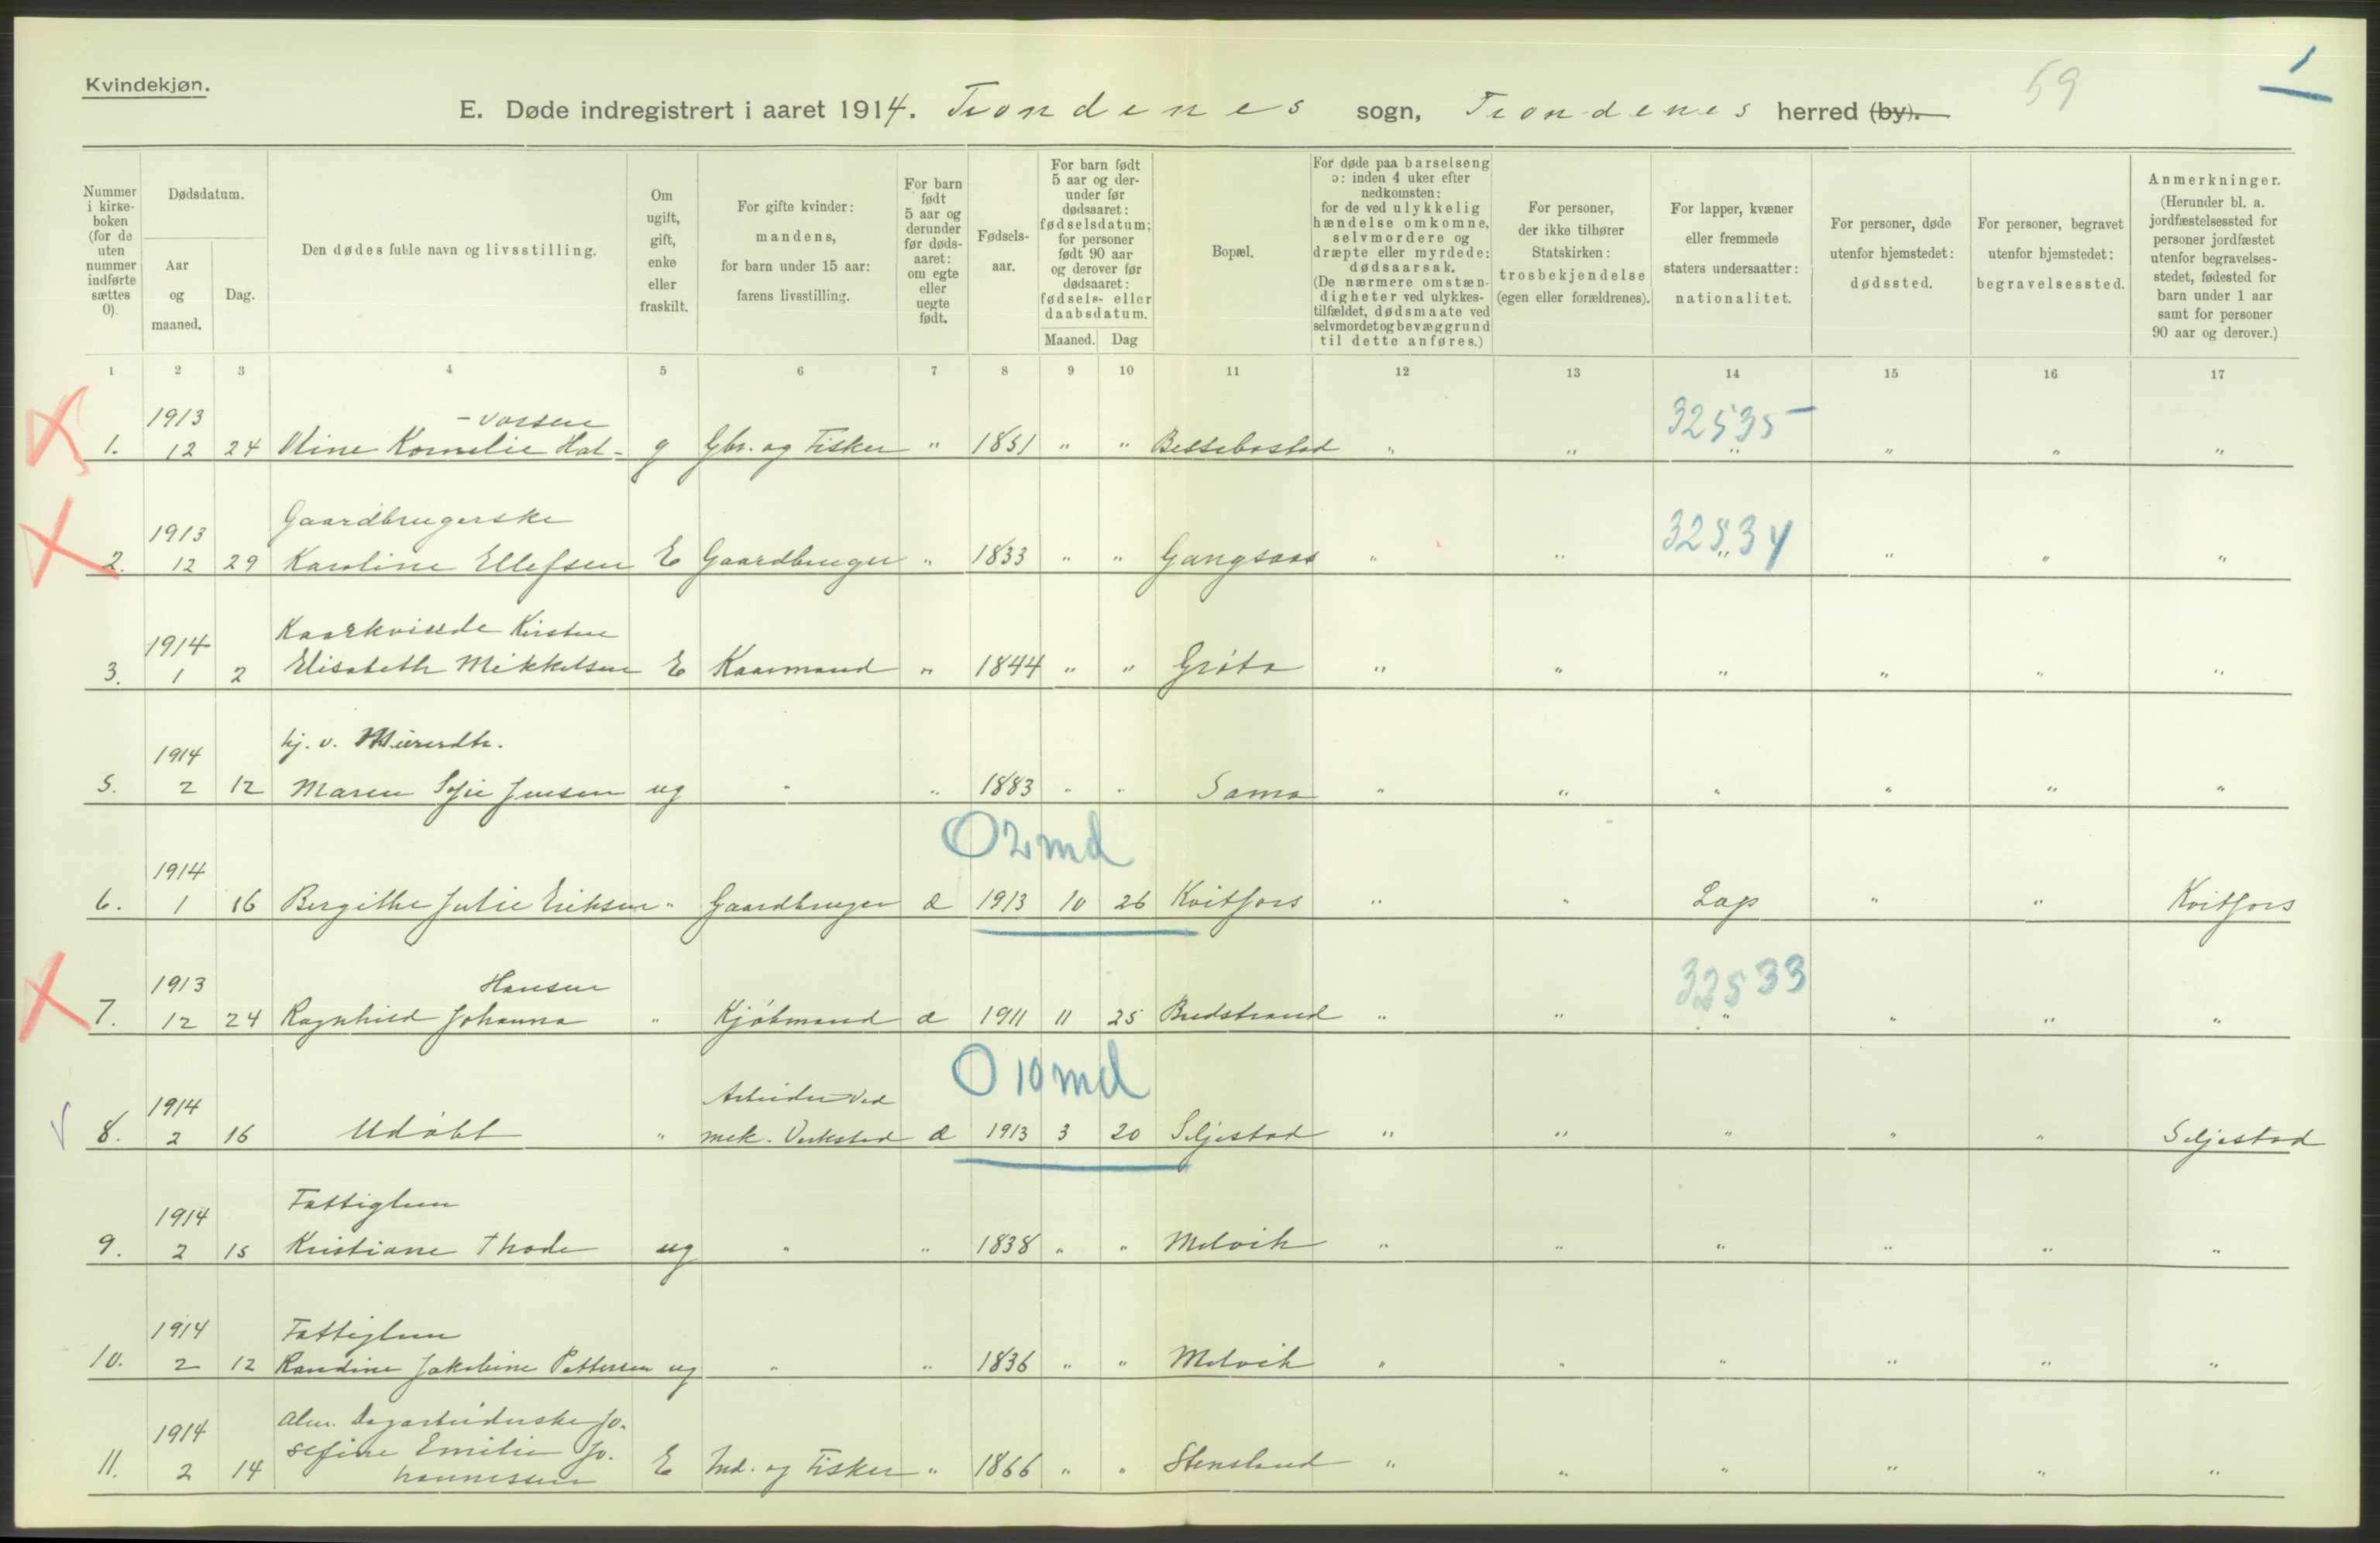 Kvindekjøn.
59
1
E. Døde indregistrert i aaret 1914. Trondenes sogn, Trondenes herred (by).
Nummer i kirkeboken (for de uten nummer indførte sættes 0).
Dødsdatum.
Aar og maaned.
Dag.
Den dødes fulde navn og livsstilling.
Om ugift, gift, enke eller fraskilt.
For gifte kvinder: mandens, for barn under 15 aar: farens livsstilling.
For barn født 5 aar og derunder før dødsaaret: om egte eller uegte født.
Fødselsaar.
For barn født 5 aar og derunder før dødsaaret: fødselsdatum; for personer født 90 aar og derover før dødsaaret: fødsels- eller daabsdatum.
Maaned.
Dag
Bopæl.
For døde paa barselseng ɔ: inden 4 uker efter nedkomsten: for de ved ulykkelig hændelse omkomne, selvmordere og dræpte eller myrdede: dødsaarsak. (De nærmere omstændigheter ved ulykkestilfældet, dødsmaate ved selvmordet og bevæggrund til dette anføres.)
For personer, der ikke tilhører Statskirken: trosbekjendelse (egen eller forældrenes).
For lapper, kvæner eller fremmede staters undersaatter: nationalitet.
For personer, døde utenfor hjemstedet: dødssted.
For personer, begravet utenfor hjemstedet: begravelsessted.
Anmerkninger. (Herunder bl. a. jordfæstelsessted for personer jordfæstet utenfor begravelsesstedet, fødested for barn under 1 aar samt for personer 90 aar og derover.)
1 2 3 4 5 6 7 8 9 10 11 12 13 14 15 16 17
1913 -vorsen 32535
1. 12 24 Oline Kornelie Hal- g Gbr. og Fisker " 1851 " " Bessebostad " " " " " "
1913 Gaardbrugerske 32534
2. 12 29 Karoline Ellefsen E Gaardbruger " 1833 " " Gangsaas " " " " " "
1914 Kaarkvinde Kirstine
3. 1 2 Elisabeth Mikkelsen E Kaarmand " 1844 " " Grøta " " " " " "
1914 hj. v.
5. 2 12 Maren Sofie Jensen ug " " 1883 " " Sama " " " " " "
O 2 md
1914
6. 1 16 Bergithe Julie Eriksen " Gaardbruger Æ 1913 10 26 Kvitfors " " Lap " " Kvitfors
1913 Hansen 32533
7. 12 24 Ragnhild Johanna " Kjøbmand Æ 1911 11 25 Bredstrand " " " " " "
O 10 md
1914 Arbeider ved
8. 2 16 Udøbt " mek. Verksted Æ 1913 3 20 Seljestad " " " " " Seljestad
1914 Fattiglem
9. 2 15 Kristiane Thode ug " " 1838 " " Melvik " " " " " "
1914 Fattiglem
10. 2 12 Randine Jakobine Pettersen ug " " 1836 " " Melvik " " " " " "
1914 Alm. Dagarbeiderske Jo-
sefine Emilie Jo-
11. 2 14 hannessen E Ind. og Fisker " 1866 " " Stensland " " " " " "